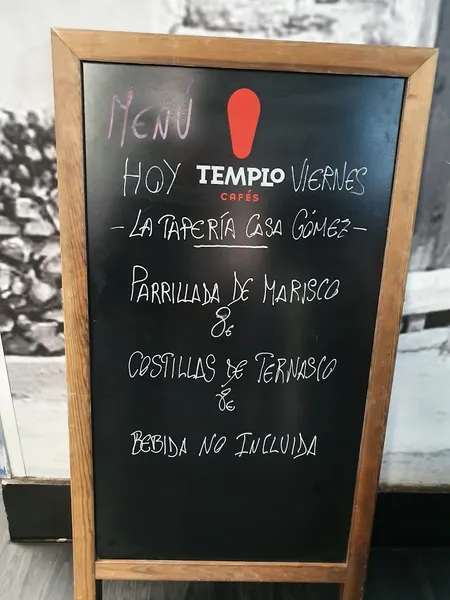 MENÚ
HOY TEMPLO VIERNES
CAFÉS
-LA TAPERÍA CASA GÓMEZ-
PARRILLADA DE MARISCO
8€
COSTILLAS DE TERNASCO
8€
BEBIDA NO INCLUIDA